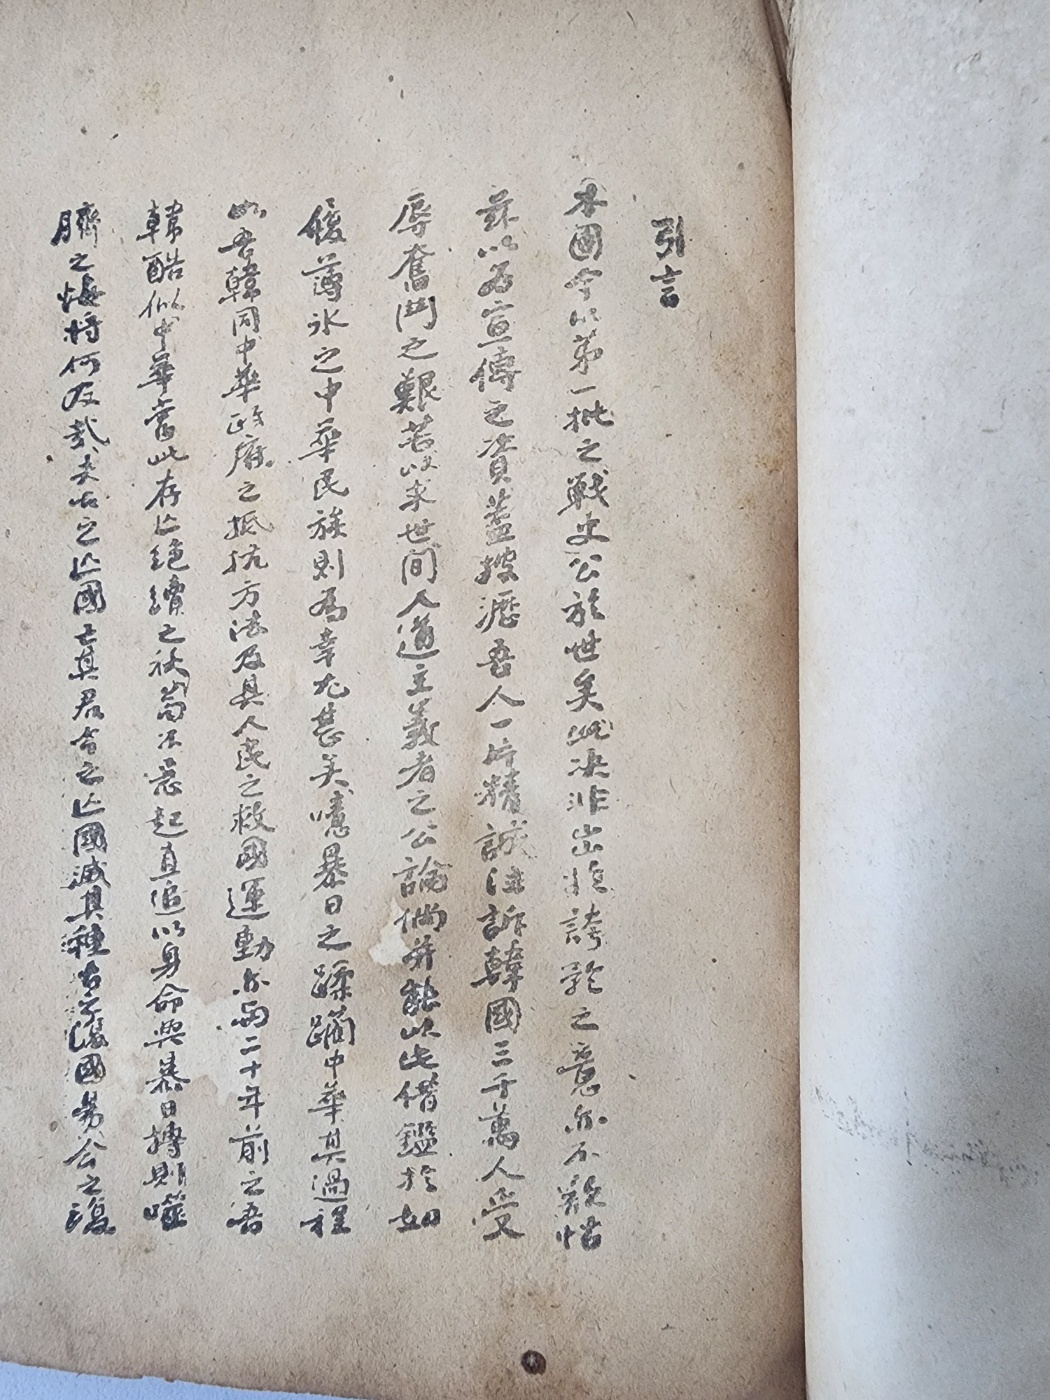 引言
本國今以第一批之戰史公於世矣此決非出於誇矜之意亦不欲
茲以為宣傳之資蓋披瀝吾人一片精誠泣訴韓國三千萬人受
辱奮鬥之艱苦以求世間人道主義者之公論倘并能以此借鑑於如
履薄氷之中華民族則為幸尤甚矣噫暴日之蹂躪中華其過程
吾韓同中華政府之抵抗方法及其人民之救國運動亦而二十年前之吾
韓酷似中華當此存亡絕續之秋尚不急起直追以身命與暴日搏則噬
臍之悔將何及哉夫古之亡國亡其君今之亡國滅其種古之復國易今之復